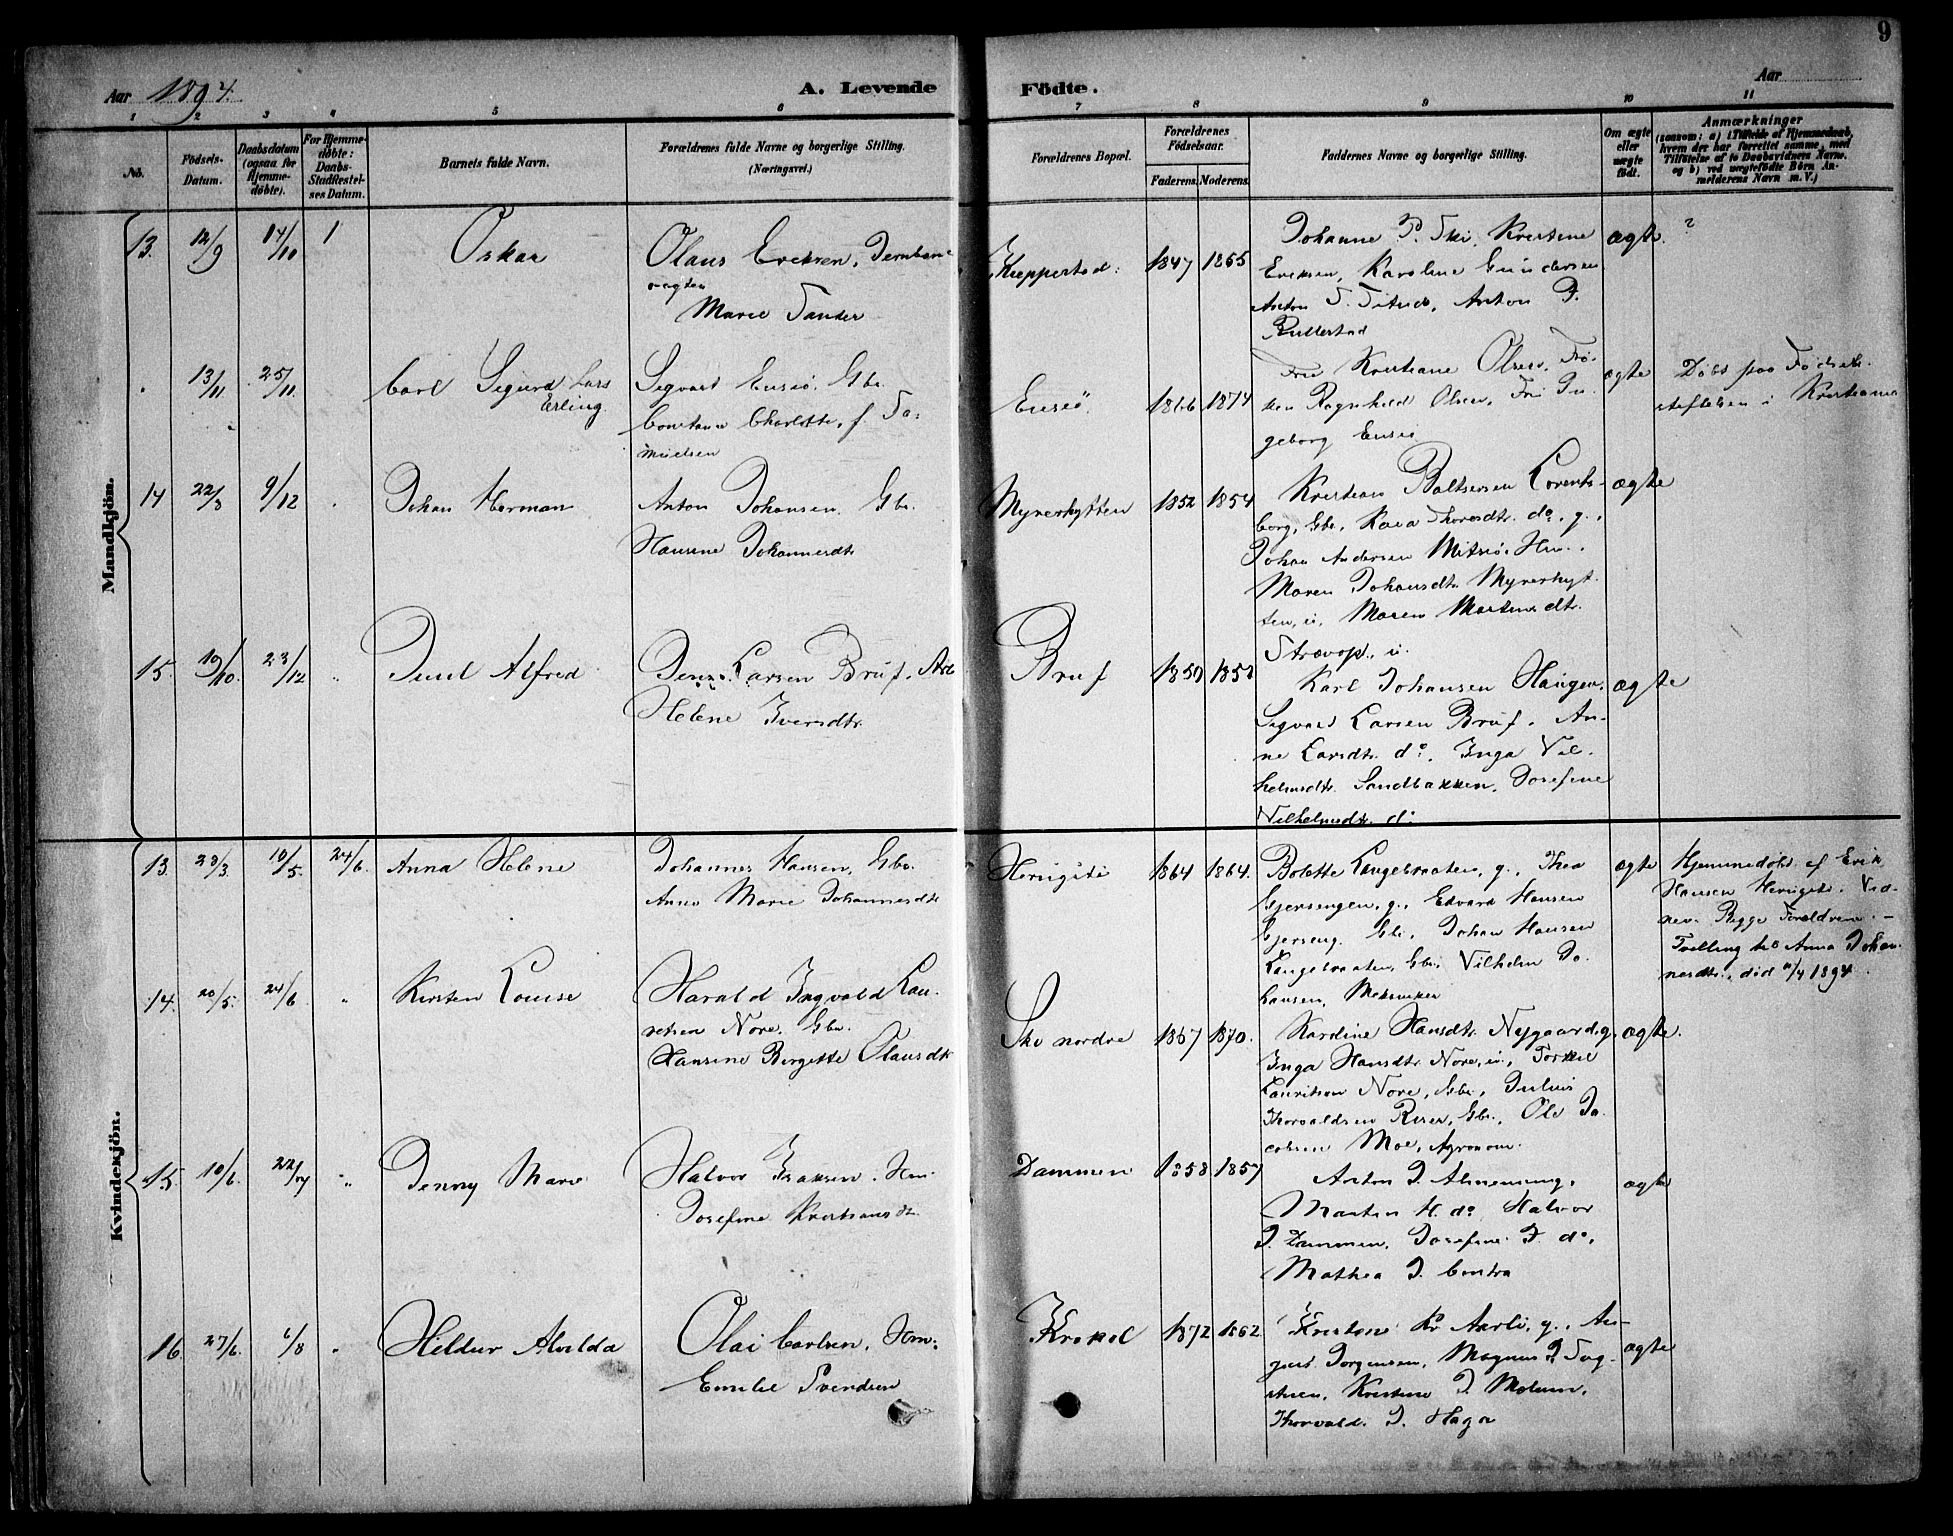 9
Aar 1894.
A. Levende Födte.
Aar
1 2 3 4 5 6 7 8 9 10 11
No.
Födsels-
Datum.
Daabsdatum
(ogsaa for
Hjemme-
döbte).
For Hjemme-
döbte:
Daabs-
Stadfæstel-
ses Datum.
Barnets fulde Navn.
Forældrenes fulde Navne og borgerlige Stilling.
(Næringsvei.)
Forældrenes Bopæl.
Forældrenes
Födselsaar.
Faderens. Moderens.
Faddernes Navne og borgerlige Stilling.
Om ægte
eller
uægte
födt.
Anmærkninger
(saasom: a) i Tilfælde af Hjemmedaab,
hvem der har forrettet samme, med
Tilföielse af to Daabsvidners Navne,
og b) ved uægtefödte Börn An-
melderens Navn m. V.)
Mandkjön.
13. 12/9 14/10 1 Oskar
Olaus Eriksen, Jernbane
vagten
Marie Sander
1847 1855
Johanne P. Ski, Kristine
Eriksen, Karoline Gundersen
Anton
Anton P.
Rullestad
ægte. ?
13/11 25/11 Carl Sigurd Lars
Erling
Sigvart Ensiö, Gbr.
Constanse Charlotte, f. Sa-
muelsen
Ensiö. 1866 1874
Fru Kristiane Olsen, Frø-
ken Ragnhild Olsen, Fru In-
geborg Ensiö
ægte
Døbt paa Fødsels-
stiftelsen i Kristiania
14 22/8 9/12 Johan Herman
Anton Johansen, Gbr.
Hansine Johannesdtr
Myrerhytten 1852 1854
Kristian Baltsersen Lorents-
borg, Gbr., Kaia Thoresdtr. do., g.,
Johan Andersen Mitsiö, Hm.,
Maren Johansdtr. Myrerhyt-
ten, u., Maren Martinsdtr.
u.
ægte
15. 19/10 23/12 Juul Alfred
Jens Larsen Bruf. Arb
Helene Iversdtr.
Bruf 1850
Karl Johansen Haugen,
Sigvart Larsen Bruf, An-
ne Larsdtr. do., Inga Vil-
helmsdtr. Sandbakken, Josefine
Vilhelmsdtr. do
ægte
Kvindekjön.
13. 28/3 10/5 24/6. Anna Helene
Johannes Hansen, Gbr.
Anne Marie Johannesdtr
1864 1864.
Bolette Langebraaten, g., Thea
Gjersengen, g., Edvard Hansen
Gjerseng, Gbr., Johan Hansen
Langebraaten, Gbr., Vilhelm Jo-
hansen, Mekaniker
ægte
Hjemmedøbt af Erik
Hansen Vid-
ner: Begge Forældrene. -
Tvilling til Anna Johan-
nesdtr., død 11/4 1894.
14. 20/5. 24/6 " Kirsten Louise
Harald Ingvald Lau-
ritsen Nore, Gbr.
Hansine Birgitte Olausdtr
Ski nordre 1867 1870.
Karoline Hansdtr Nygaard, g.,
Inga Hansdtr Nore, u., Torkel
Lauritsen Nore, Gbr., Julius
Thorvaldsen Riser, Gbr., Ole Ja-
cobsen Moe, Agronom.
ægte.
15. 10/6. 22/7 " Jenny Marie
Halvor Isaksen, Hm
Josefine Kristiansdtr.
Dammen 1858 1857
Anton J. Almenning,
Martin H. do, Halvor
J. Dammen, Josefine J. do,
Mathea J.
ægte
16 27/6. 6/8 " Hildur Alvilda
Olai Carlsen, Hm.
Emilie Svendsen
1872 1862.
Kristine Kr Aarli, g., Au-
gust Jørgensen, Magnus
Kristine J. Molum,
Thorvald J. Haga
ægte